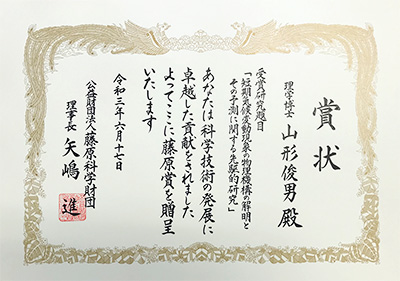 賞状
理学博士 山形俊男殿
受賞研究題目
「短期気候変動現象の物理機構の解明と
その予測に関する先駆的研究」
あなたは科学技術の発展に
卓越した貢献をされました
よってここに藤原賞を贈呈
いたします
令和三年六月十七日
公益財団法人藤原科学財団
理事長 矢嶋 進